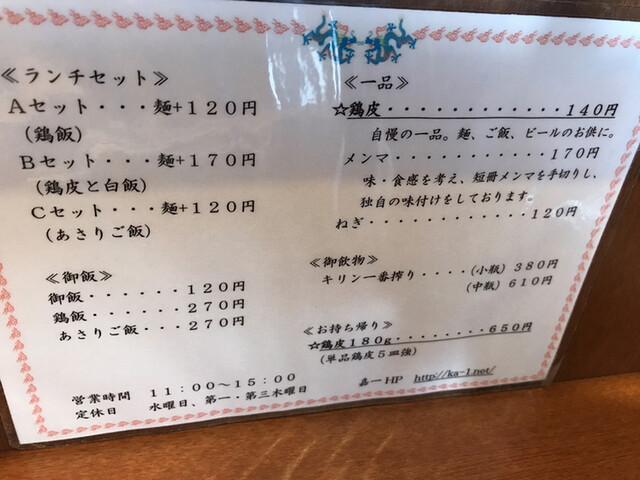 ≪ランチセット≫
Aセット・・・麺+120円
(鶏飯)
Bセット・・・麺+170円
(鶏皮と白飯)
Cセット・・・麺+120円
(あさりご飯)
≪御飯≫
御飯・・・・・・120円
鶏飯・・・・・・270円
あさりご飯・・・270円
営業時間 11:00~15:00
定休日 水曜日、第一・第三木曜日
≪一品≫
☆鶏皮・・・・・・・・・・・・140円
自慢の一品。麺、ご飯、ビールのお供に。
メンマ・・・・・・・・・・・170円
味・食感を考え、短冊メンマを手切りし、
独自の味付けをしております。
ねぎ・・・・・・・・・・・・120円
≪御飲物≫
キリン一番搾り・・・・(小瓶) 380円
(中瓶) 610円
≪お持ち帰り≫
☆鶏皮180g・・・・・・・・650円
(単品鶏皮5皿強)
嘉一HP http://ka-1.net/